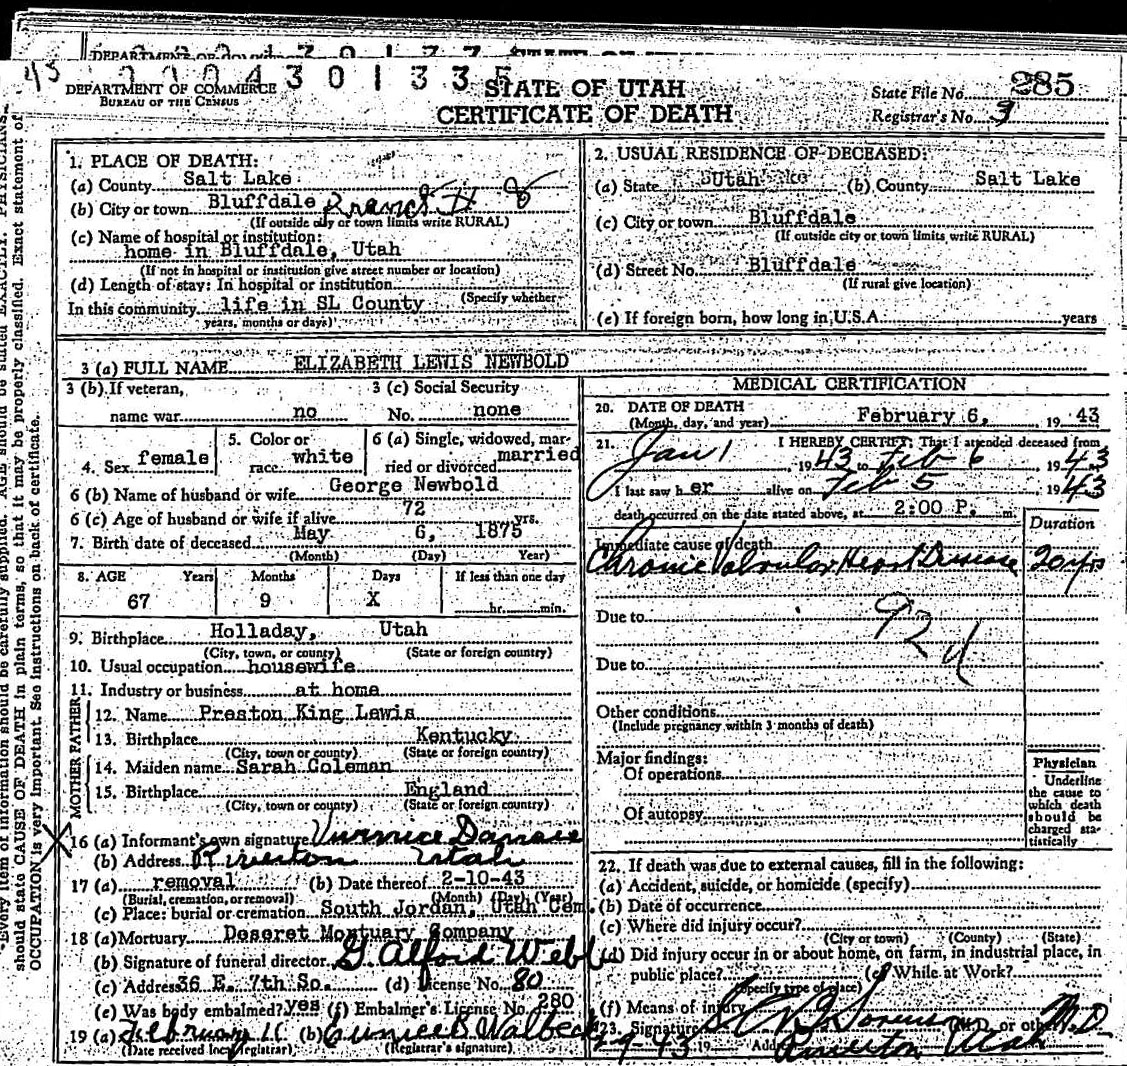 DEPARTMENT OF COMMERCE
BUREAU OF THE CENSUS
45 0004301335
STATE OF UTAH
CERTIFICATE OF DEATH
State File No. 285
Registrar's No. 3
1. PLACE OF DEATH:
(a) County Salt Lake
(b) City or town Bluffdale
(If outside city or town limits write RURAL)
(c) Name of hospital or institution:
home in Bluffdale, Utah
(If not in hospital or institution give street number or location)
(d) Length of stay: In hospital or institution
(Specify whether
In this community life in SL County
years, months or days)
2. USUAL RESIDENCE OF DECEASED:
(a) State Utah (b) County Salt Lake
(c) City or town Bluffdale
(If outside city or town limits write RURAL)
(d) Street No. Bluffdale
(If rural give location)
(e) If foreign born, how long in U.S.A. years
3 (a) FULL NAME ELIZABETH LEWIS NEWBOLD
3 (b) If veteran, 3 (c) Social Security
name war no No. none
4. Sex female 5. Color or race white 6 (a) Single, widowed, married or divorced married
6 (b) Name of husband or wife George Newbold
6 (c) Age of husband or wife if alive 72 yrs.
7. Birth date of deceased May 6, 1875
(Month) (Day) Year)
8. AGE Years Months Days If less than one day
67 9 X hr. min.
9. Birthplace Holladay, Utah
(City, town, or county) (State or foreign country)
10. Usual occupation housewife
11. Industry or business at home
FATHER
12. Name Preston King Lewis
13. Birthplace Kentucky
(City, town or county) (State or foreign country)
MOTHER
14. Maiden name Sarah Coleman
15. Birthplace England
(City, town, or county) (State or foreign country)
16 (a) Informant's own signature
(b) Address Riverton Utah
17 (a) removal (b) Date thereof 2-10-43
(Burial, cremation, or removal) (Month) (Day) (Year)
(c) Place: burial or cremation South Jordan, Utah Cem.
18 (a) Mortuary Deseret Mortuary Company
(b) Signature of funeral director G. Alford Webb
(c) Address 36 E. 7th So. (d) License No. 80
(e) Was body embalmed? yes (f) Embalmer's License No. 280
19 (a) February 11 (b) Eunice B. Walbeck
(Date received local registrar) (Registrar's signature)
MEDICAL CERTIFICATION
20. DATE OF DEATH
(Month, day, and year) February 6, 19 43
21. I HEREBY CERTIFY; That I attended deceased from
Jan 1 1943 to Feb 6 1943
I last saw her alive on Feb 5 1943
death occurred on the date stated above, at 2:00 P. m.
Duration
Immediate cause of death
Chronic Valvular Heart Disease 20 yrs
Due to
92
Due to
Other conditions
(Include pregnancy within 3 months of death)
Major findings:
Of operations
Of autopsy
Physician
Underline
the cause to
which death
should be
charged sta-
tistically
22. If death was due to external causes, fill in the following:
(a) Accident, suicide, or homicide (specify)
(b) Date of occurrence
(c) Where did injury occur?
(City or town) (County) (State)
(d) Did injury occur in or about home, on farm, in industrial place, in
public place? (e) While at Work?
(Specify type of place)
(f) Means of injury
23. Signature M.D. or other M.D.
2-9-43 19 Add. Riverton Utah
Every item of information should be carefully supplied. AGE should be stated EXACTLY. PHYSICIANS
should state CAUSE OF DEATH in plain terms, so that it may be properly classified. Exact statement of
OCCUPATION is very important. See instructions on back of certificate.